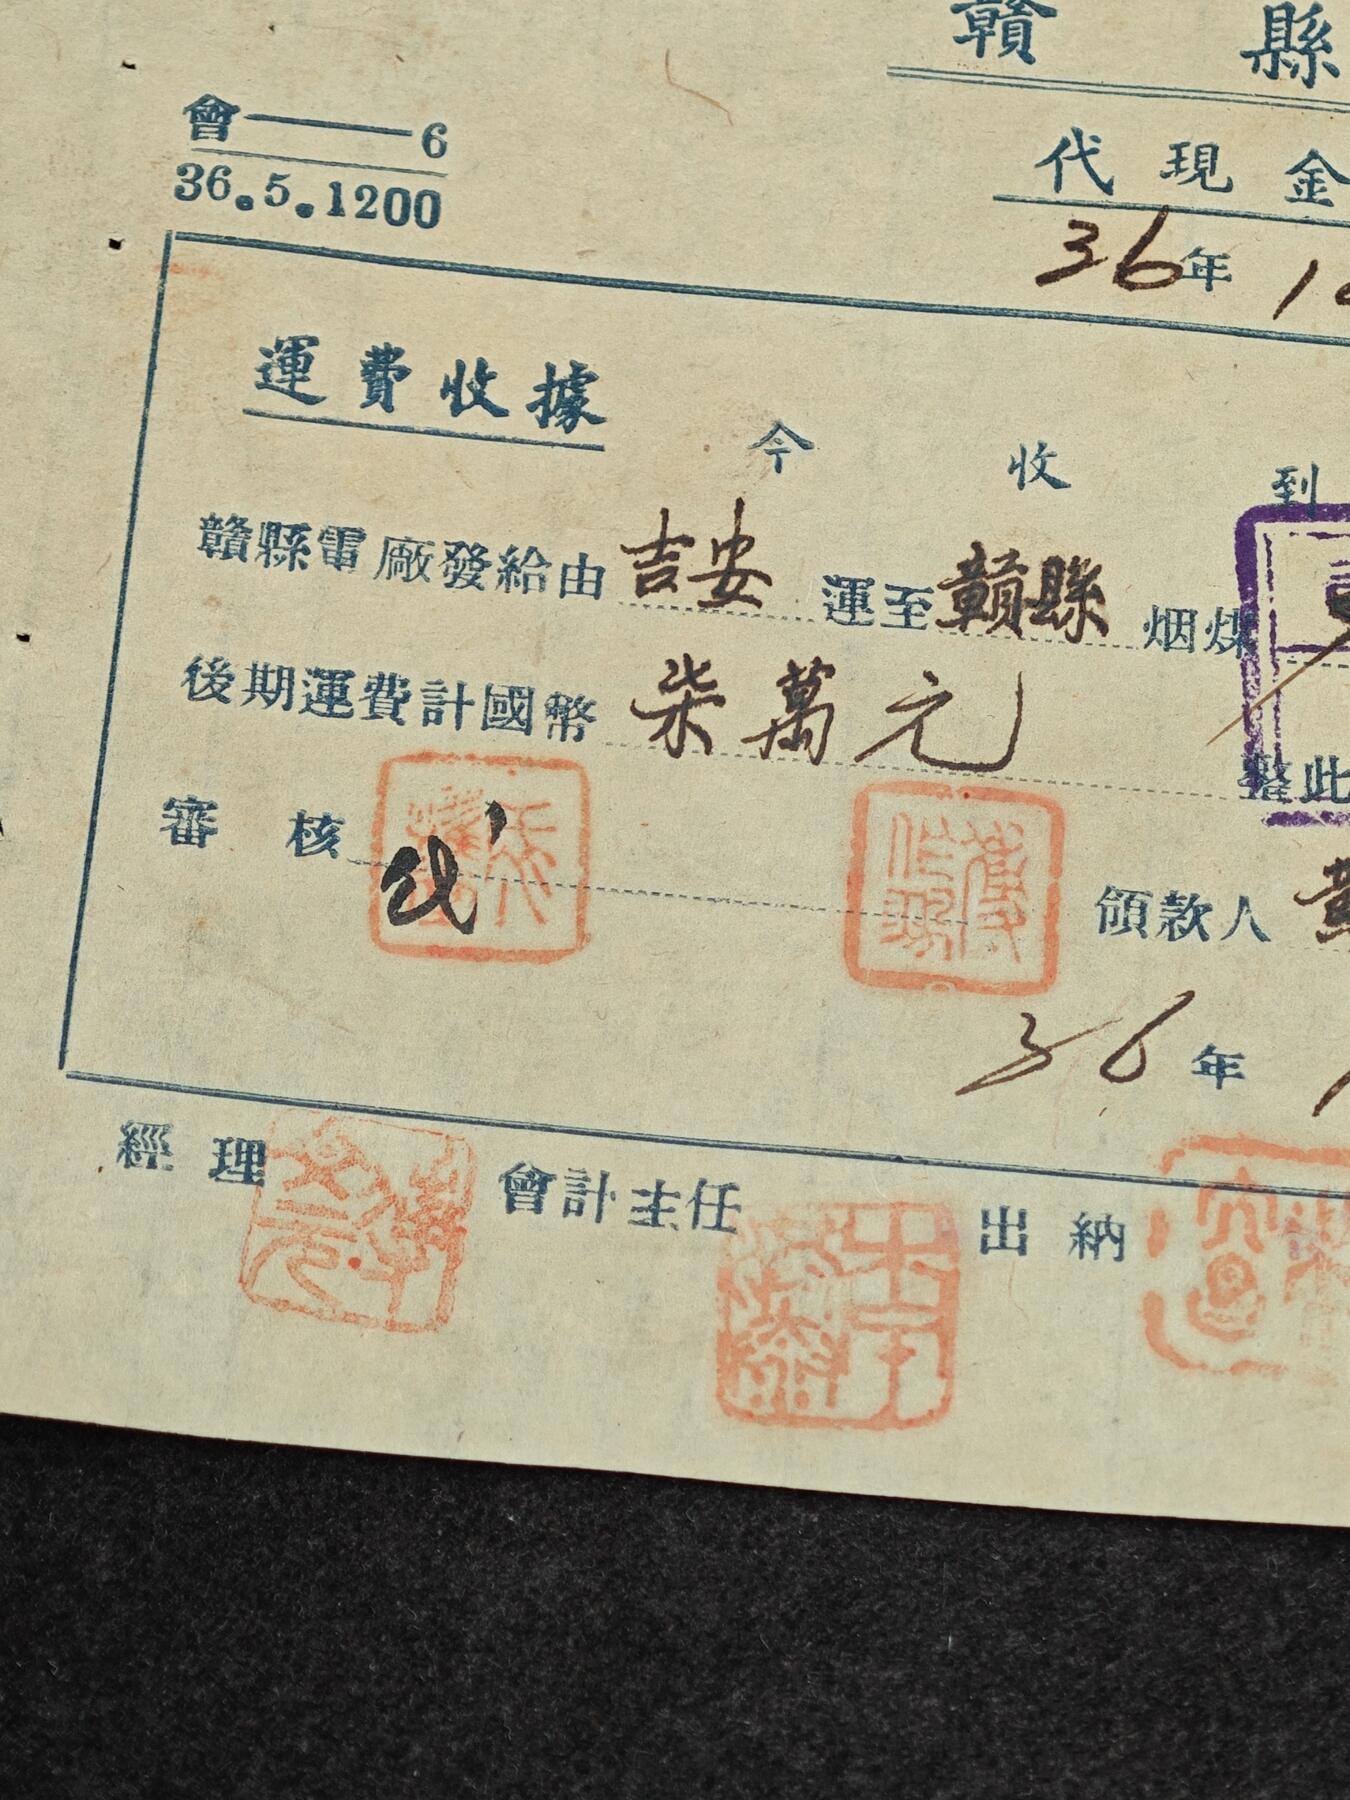 贛縣
會——6
36.5.1200
代現金
36年1
運費收據
今收到
贛縣電廠發給由吉安運至贛縣烟煤
後期運費計國幣柒萬元整此
審核代
領款人
36年
經理 會計主任 出納